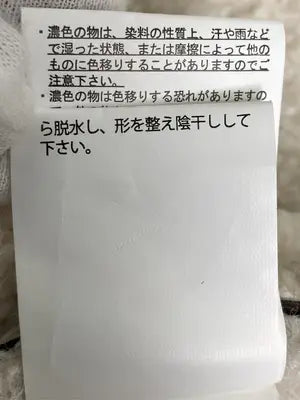 ・濃色の物は、染料の性質上、汗や雨など
で湿った状態、または摩擦によって他の
ものに色移りすることがありますのでご
注意下さい。
・濃色の物は色移りする恐れがありますの
ら脱水し、形を整え陰干しして
下さい。